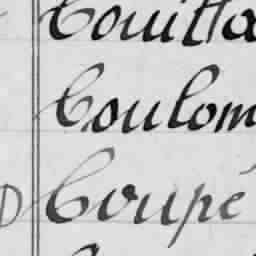 Couilla
Coulom
Coupé